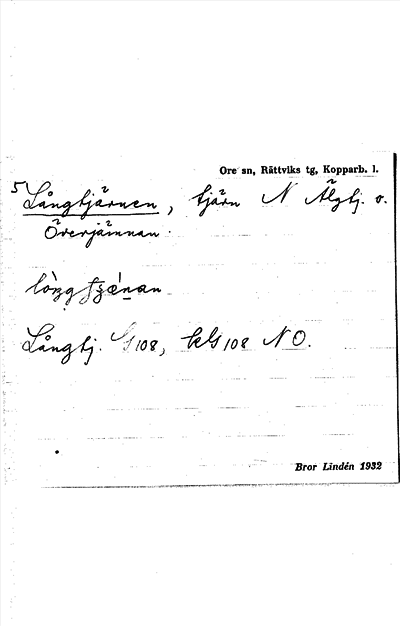 Ore sn, Rättviks tg, Kopparb. l.
5 Långtjärnen, tjärn N Älgtj. o.
Överjämnan.
Långtj. G 108, NO.
Bror Lindén 1932